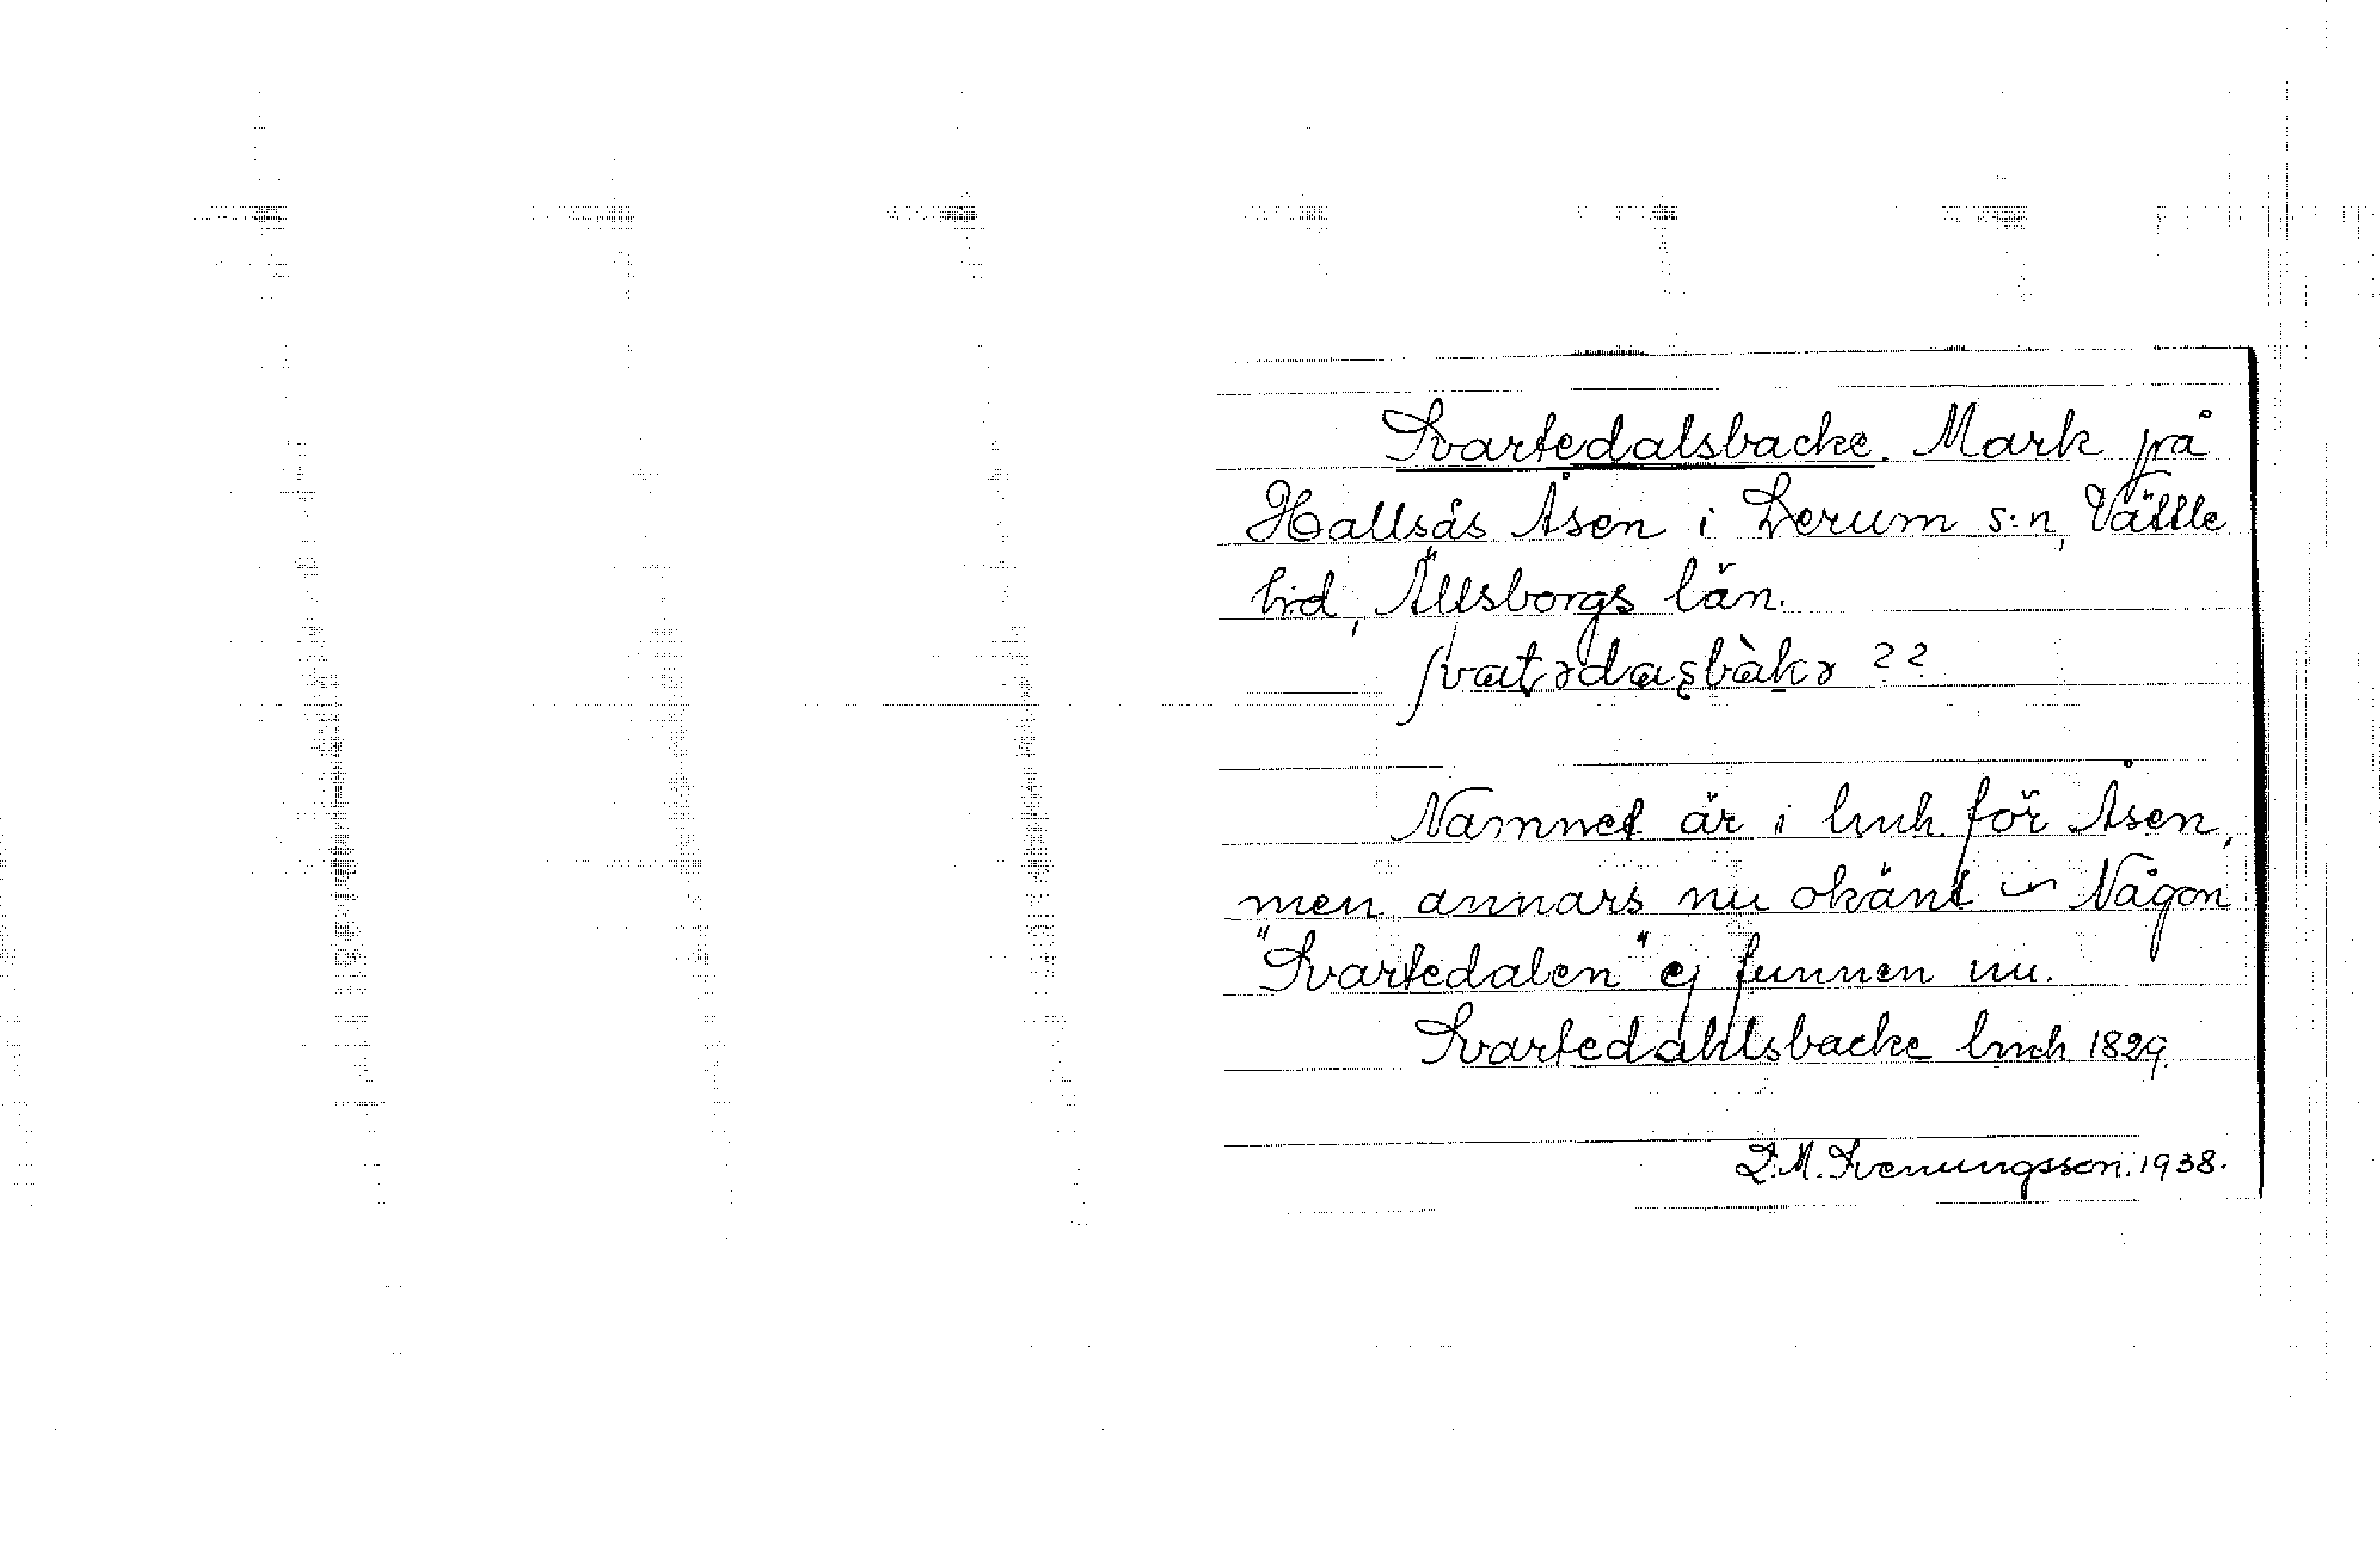 Svartedalsbacke. Mark på
Hallsås Åsen i Lerum s:n, Vättle
hd, Älfsborgs län.
svatədasbàkə ??
Namnet är i lmh för Åsen,
men annars nu okänt – Någon
"Svartedalen" ej funnen nu.
Svartedahlsbacke lmh 1829.
D.M. Svenungsson. 1938.